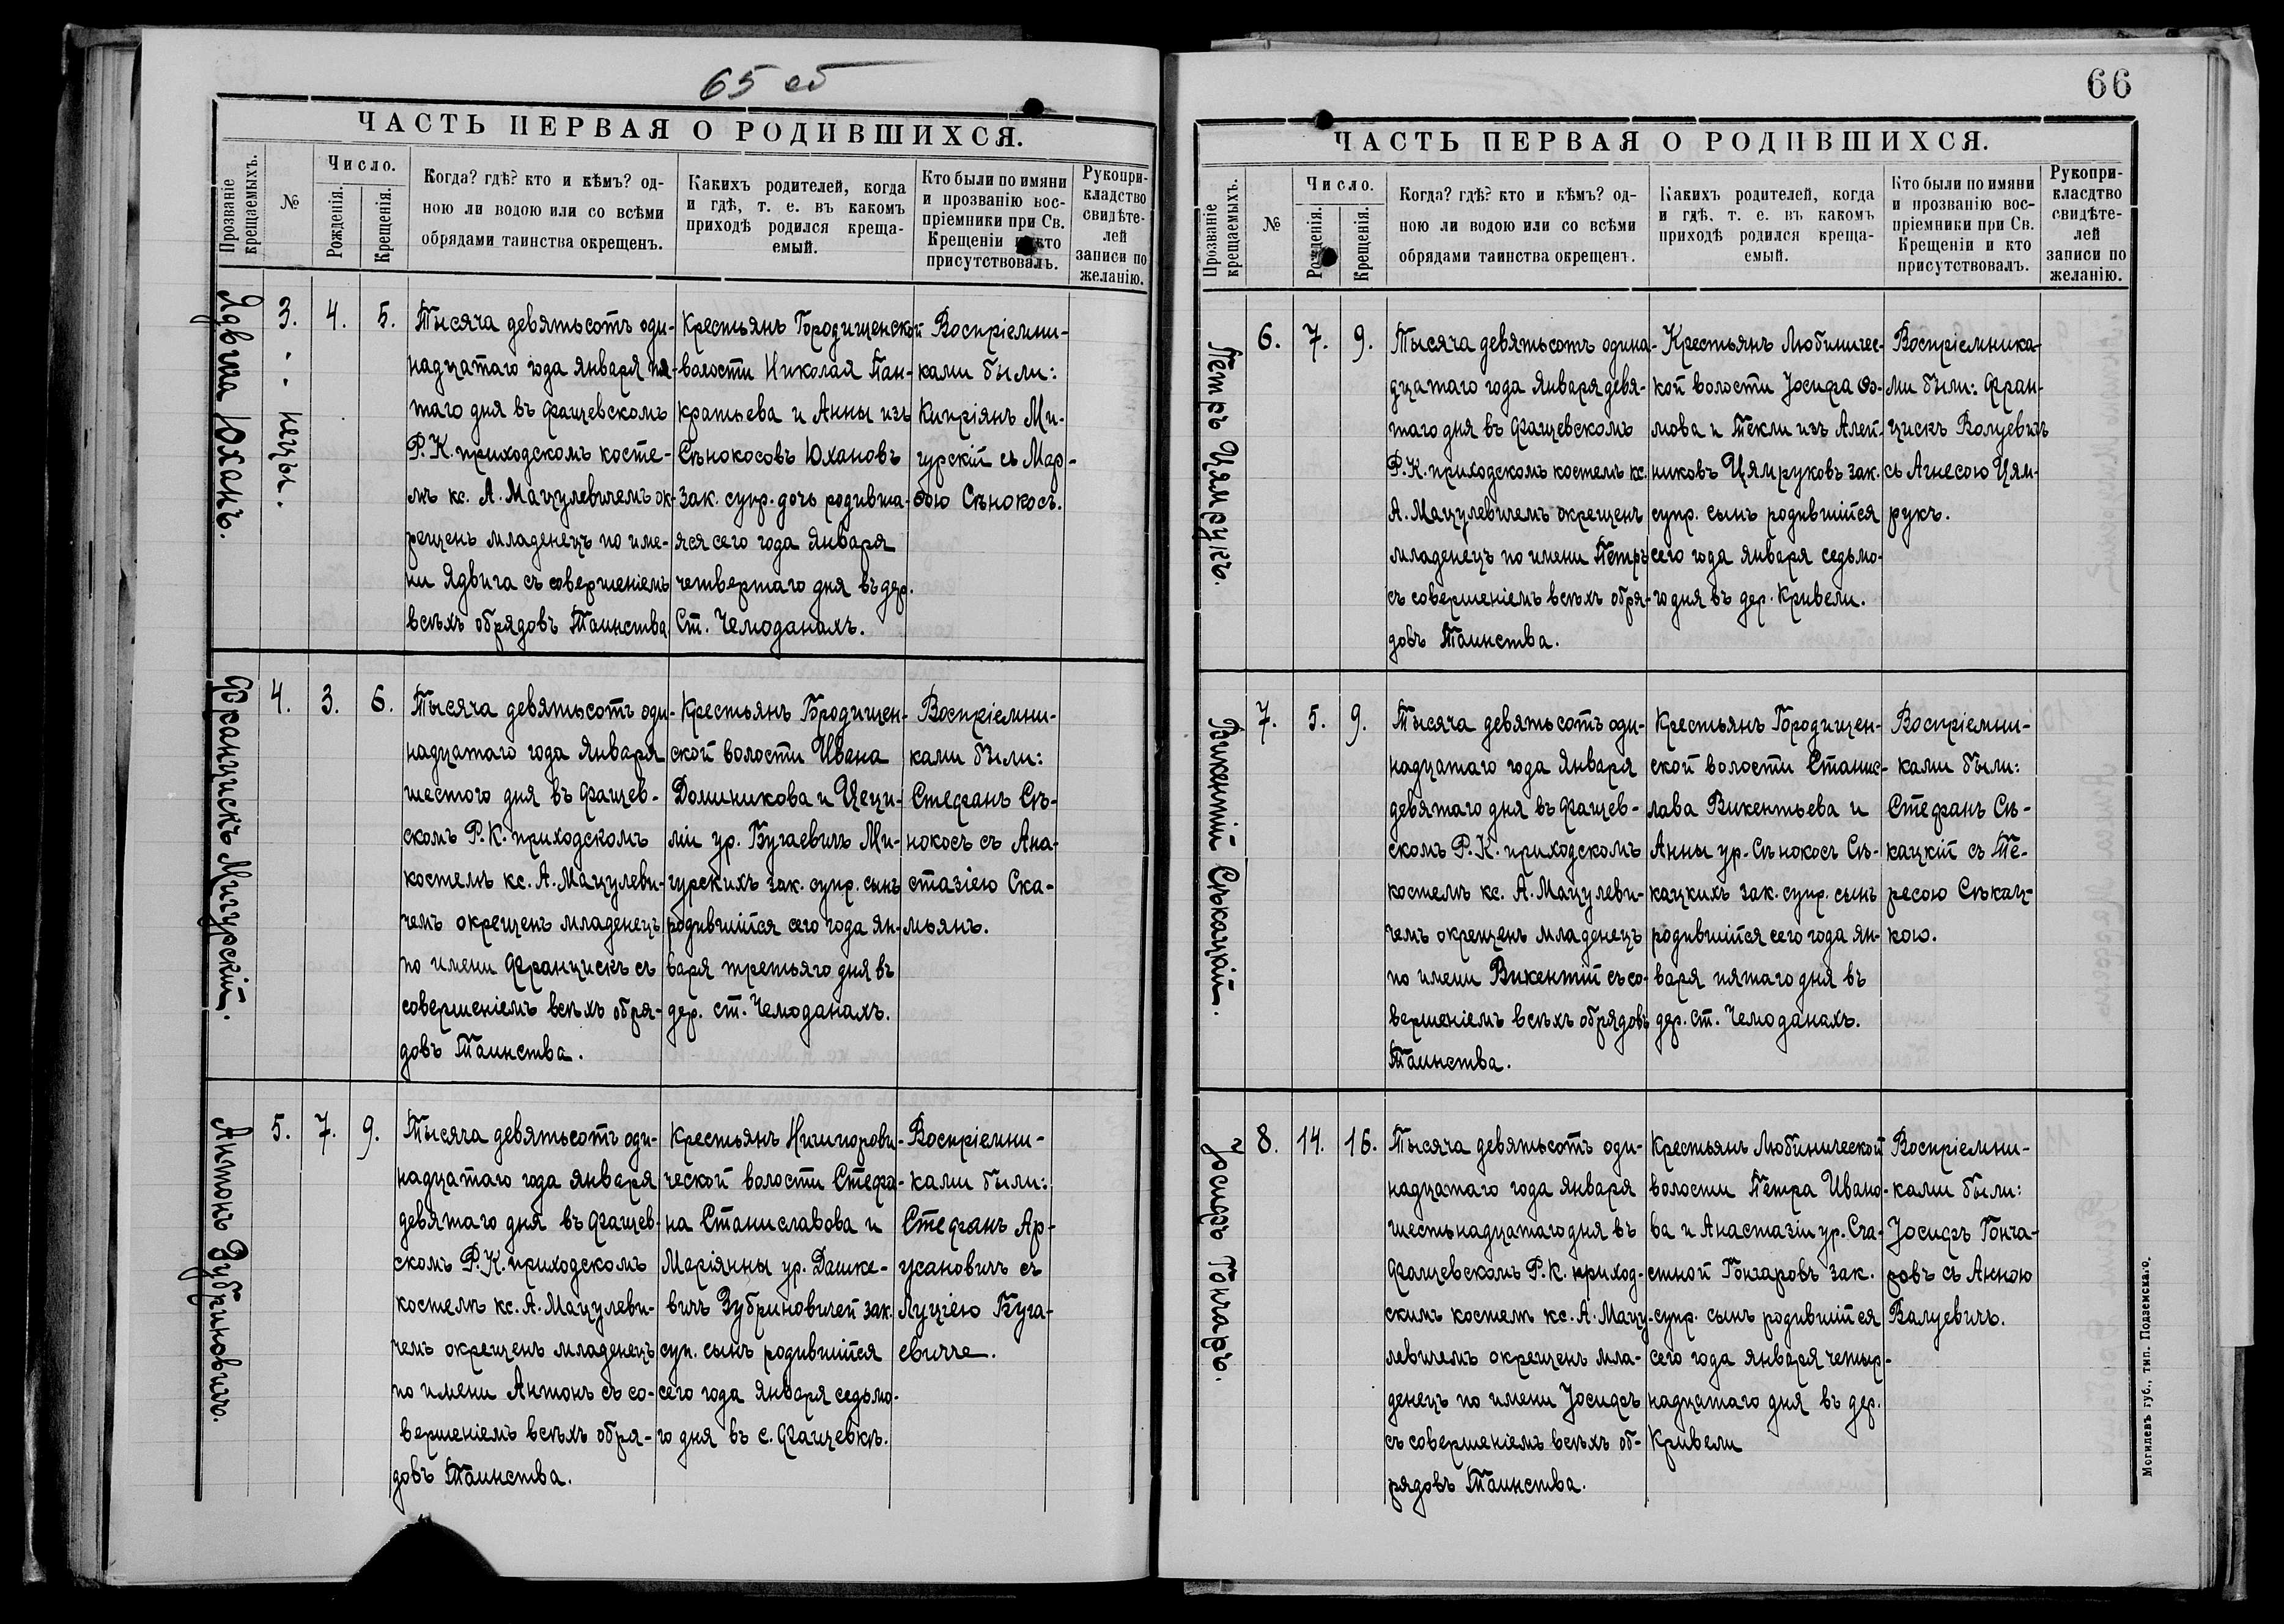 65 об
ЧАСТЬ ПЕРВАЯ О РОДИВШИХСЯ.
Прозваніе крещаемыхъ.
№
Число.
Рожденія.
Крещенія.
Когда? гдѣ? кто и кѣмъ? од-
ною ли водою или со всѣми
обрядами таинства окрещенъ.
Какихъ родителей, когда
и гдѣ, т. е. въ какомъ
приходѣ родился креща-
емый.
Кто были по имяни
и прозванію вос-
пріемники при Св.
Крещеніи и кто
присутствовалъ.
Рукопри-
кладство
свидѣте-
лей
записи по
желанію.
Ядвига Юханъ.
3.
4.
5.
Тысяча девятьсотъ оди-
надцатаго года января пя-
таго дня въ Фащевскомъ
Р. К. приходскомъ косте-
лѣ кс. А. Мацулевичемъ ок-
рещенъ младенецъ по име-
ни Ядвига съ совершеніемъ
всѣхъ обрядовъ Таинства
Крестьянъ Городищенской
волости Николая Пан-
кратьева и Анны изъ
Сѣнокосовъ Юхановъ
зак. супр. дочь родивша-
яся сего года Января
четвертаго дня въ дер.
Ст. Чемоданахъ.
Воспріемни-
ками были:
Кипріянъ Ми-
гурскій съ Мар-
ѳою Сѣнокосъ.
Францискъ Мигурскій.
4.
3.
6.
Тысяча девятьсотъ оди-
надцатаго года Января
шестого дня въ Фащев-
скомъ Р. К. приходскомъ
костелѣ кс. А. Мацулеви-
чемъ окрещенъ младенецъ
по имени Францискъ съ
совершеніемъ всѣхъ обря-
довъ Таинства.
Крестьянъ Городищен-
ской волости Ивана
Доминикова и Цеци-
ліи ур. Бугаевичъ Ми-
гурскихъ зак. супр. сынъ
родившійся сего года ян-
варя третьяго дня въ
дер. ст. Чемоданахъ.
Воспріемни-
ками были:
Стефанъ Сѣ-
нокосъ съ Ана-
стазіею Ска-
мьянъ.
Антонъ Зубриновичъ.
5.
7.
9.
Тысяча девятьсотъ оди-
надцатаго года января
девятаго дня въ Фащев-
скомъ Р. К. приходскомъ
костелѣ кс. А. Мацулеви-
чемъ окрещенъ младенецъ
по имени Антонъ съ со-
вершеніемъ всѣхъ обря-
довъ Таинства.
Крестьянъ
ческой волости Стефа-
на Станиславова и
Маріянны ур. Дашке-
вичъ Зубриновичей зак.
суп. сынъ родившійся
сего года Января седьмо-
го дня въ с. Фащевкѣ.
Воспріемни-
ками были:
Стефанъ Ар-
усановичъ съ
Луціею Буга-
евичъ.
66
ЧАСТЬ ПЕРВАЯ О РОДИВШИХСЯ.
Прозваніе крещаемыхъ.
№
Число.
Рожденія.
Крещенія.
Когда? гдѣ? кто и кѣмъ? од-
ною ли водою или со всѣми
обрядами таинства окрещенъ.
Какихъ родителей, когда
и гдѣ, т. е. въ какомъ
приходѣ родился креща-
емый.
Кто были по имяни
и прозванію вос-
пріемники при Св.
Крещеніи и кто
присутствовалъ.
Рукопри-
касдтво
свидѣте-
лей
записи по
желанію.
Петръ Цямрукъ.
6.
7.
9.
Тысяча девятьсотъ одина-
дцатаго года Января девя-
таго дня въ Фащевскомъ
Р. К. приходскомъ костелѣ кс.
А. Мацулевичемъ окрещенъ
младенецъ по имени Петръ
съ совершеніемъ всѣхъ обря-
довъ Таинства.
Крестьянъ Любиничес-
кой волости Іосифа Ѳо-
мова и Текли изъ Алей-
никовъ Цямруковъ зак.
супр. сынъ родившійся
сего года января седьмо-
го дня въ дер. Кривели.
Воспріемника-
ми были: Фран-
цискъ Валуевичъ
съ Агнесою Цям-
рукъ.
Викентій Сѣкацкій.
7.
5.
9.
Тысяча девятьсотъ оди-
надцатаго года Января
девятаго дня въ Фащев-
скомъ Р. К. приходскомъ
костелѣ кс. А. Мацулеви-
чемъ окрещенъ младенецъ
по имени Викентій съ со-
вершеніемъ всѣхъ обрядовъ
Таинства.
Крестьянъ Городищен-
ской волости Станис-
лава Викентьева и
Анны ур. Сѣнокосъ Сѣ-
кацкихъ зак. супр. сынъ
родившійся сего года ян-
варя пятаго дня въ
дер. ст. Чемоданахъ.
Воспріемни-
ками были:
Стефанъ Сѣ-
кацкій съ Те-
ресою Сѣкац-
кою.
Іосифъ Гончаръ.
8.
14.
16.
Тысяча девятьсотъ оди-
надцатаго года Января
шестьнадцатаго дня въ
Фащевскомъ Р. К. приход-
скимъ костелѣ кс. А. Мацу-
левичемъ окрещенъ мла-
денецъ по имени Іосифъ
съ совершеніемъ всѣхъ об-
рядовъ Таинства.
Крестьянъ Любинической
волости Петра Ивано-
ва и Анастазіи ур. Сча-
стной Гончаровъ зак.
супр. сынъ родившійся
сего года января четыр-
надцатаго дня въ дер.
Кривели
Воспріемни-
ками были:
Іосифъ Гонча-
ровъ съ Анною
Валуевичъ.
Могилевъ губ., тип. Подземскаго.